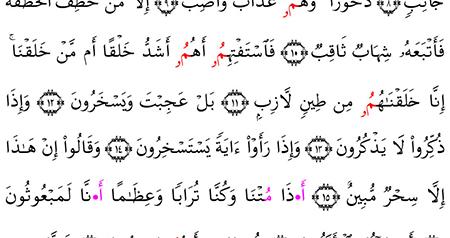 جَانِبٍ ﴿٨﴾ دُحُورًا وَلَهُمُۥ عَذَابٌ وَاصِبٌ ﴿٩﴾ إِلَّا مَنْ خَطِفَ ٱلْخَطْفَةَ
فَأَتْبَعَهُۥ شِهَابٌ ثَاقِبٌ ﴿١٠﴾ فَٱسْتَفْتِهِمُۥ أَهُمُۥ أَشَدُّ خَلْقًا أَم مَّنْ خَلَقْنَا ۚ
إِنَّا خَلَقْنَٰهُمُۥ مِن طِينٍ لَّازِبٍ ﴿١١﴾ بَلْ عَجِبْتَ وَيَسْخَرُونَ ﴿١٢﴾ وَإِذَا
ذُكِّرُوا۟ لَا يَذْكُرُونَ ﴿١٣﴾ وَإِذَا رَأَوْا۟ ءَايَةً يَسْتَسْخِرُونَ ﴿١٤﴾ وَقَالُوٓا۟ إِنْ هَٰذَا
إِلَّا سِحْرٌ مُّبِينٌ ﴿١٥﴾ أَ•ذَا مُتْنَا وَكُنَّا تُرَابًا وَعِظَٰمًا أَ•نَّا لَمَبْعُوثُونَ